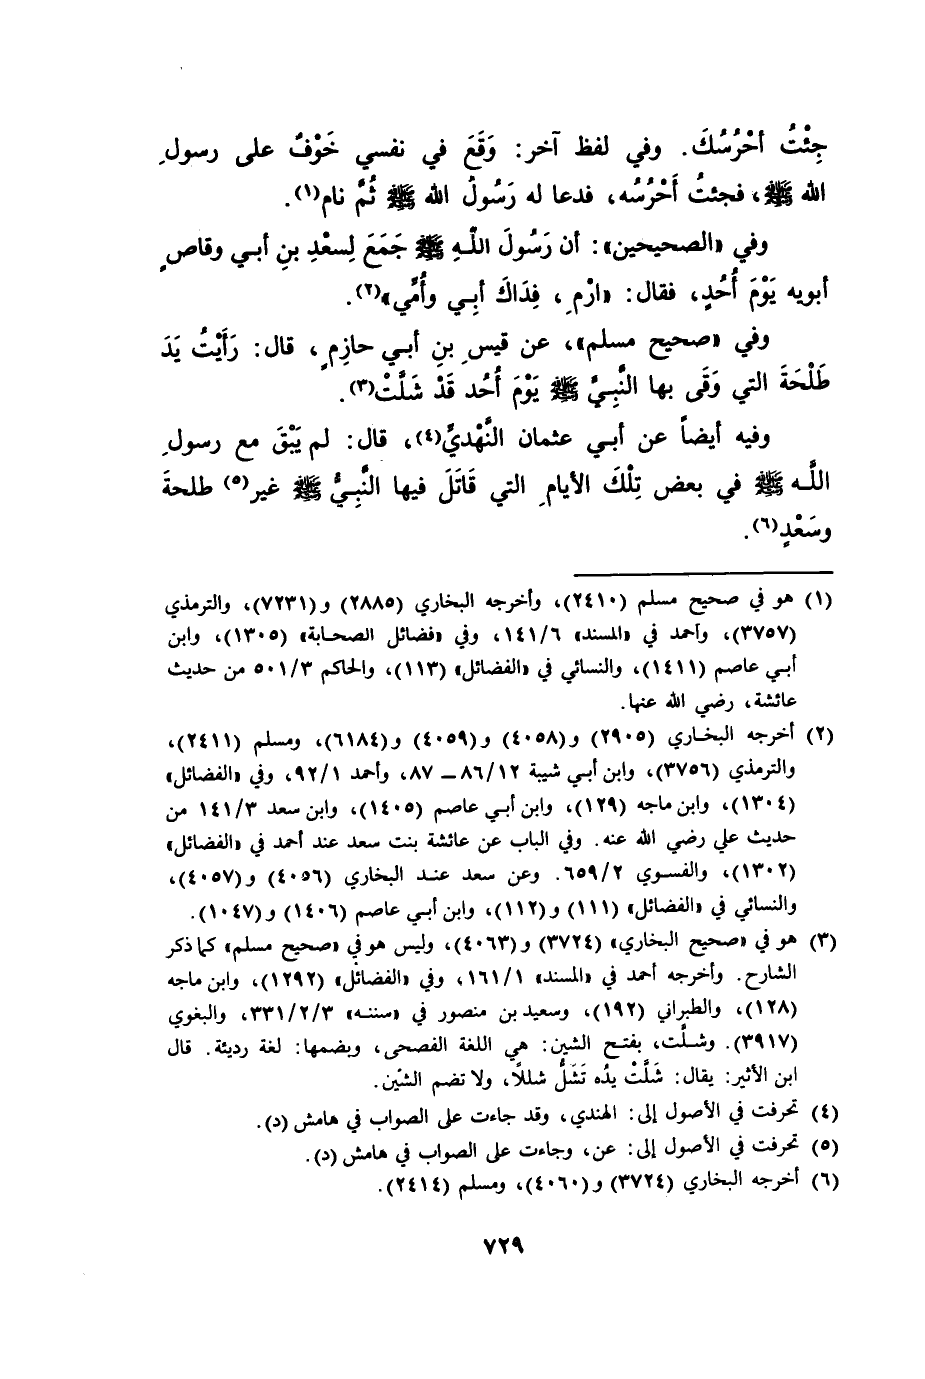 جِئْتُ أَحْرُسُكَ. وفي لفظ آخر: وَقَعَ في نفسي خَوْفٌ على رسولِ
الله ﷺ، فجئتُ أَحْرُسُه، فدعا له رَسُولُ الله ﷺ ثُمَّ نام(١).
وفي «الصحيحين»: أن رَسُولَ اللَّهِ ﷺ جَمَعَ لِسعْدِ بنِ أبي وقاصٍ
أبويه يَوْمَ أُحُدٍ، فقال: «ارْمِ، فِدَاكَ أَبِي وأُمِّي»(٢).
وفي «صحيح مسلم»، عن قيسِ بنِ أبي حازِمٍ، قال: رَأَيْتُ يَدَ
طَلْحَةَ التي وَقَى بها النَّبِيَّ ﷺ يَوْمَ أُحُد قَدْ شَلَّتْ(٣).
وفيه أيضاً عن أبي عثمان النَّهْدِيِّ(٤)، قال: لم يَبْقَ مع رسولِ
اللَّه ﷺ في بعض تِلْكَ الأيامِ التي قَاتَلَ فيها النَّبِيُّ ﷺ غير(٥) طلحةَ
وسَعْدٍ(٦).
(١) هو في صحيح مسلم (٢٤١٠)، وأخرجه البخاري (٢٨٨٥) و(٧٢٣١)، والترمذي
(٣٧٥٧)، وأحمد في «المسند» ١٤١/٦، وفي «فضائل الصحابة» (١٣٠٥)، وابن
أبي عاصم (١٤١١)، والنسائي في «الفضائل» (١١٣)، والحاكم ٥٠١/٣ من حديث
عائشة، رضي الله عنها.
(٢) أخرجه البخاري (٢٩٠٥) و(٤٠٥٨) و(٤٠٥٩) و(٦١٨٤)، ومسلم (٢٤١١)،
والترمذي (٣٧٥٦)، وابن أبي شيبة ٨٦/١٢ ــ ٨٧، وأحمد ٩٢/١، وفي «الفضائل»
(١٣٠٤)، وابن ماجه (١٢٩)، وابن أبي عاصم (١٤٠٥)، وابن سعد ١٤١/٣ من
حديث علي رضي الله عنه. وفي الباب عن عائشة بنت سعد عند أحمد في «الفضائل»
(١٣٠٢)، والفسوي ٦٥٩/٢. وعن سعد عند البخاري (٤٠٥٦) و(٤٠٥٧)،
والنسائي في «الفضائل» (١١١) و(١١٢)، وابن أبي عاصم (١٤٠٦) و(١٠٤٧).
(٣) هو في «صحيح البخاري» (٣٧٢٤) و(٤٠٦٣)، وليس هو في «صحيح مسلم» كما ذكر
الشارح. وأخرجه أحمد في «المسند» ١٦١/١، وفي «الفضائل» (١٢٩٢)، وابن ماجه
(١٢٨)، والطبراني (١٩٢)، وسعيد بن منصور في «سننه» ٣٣١/٢/٣، والبغوي
(٣٩١٧). وشلَّت، بفتح الشين: هي اللغة الفصحى، وبضمها: لغة رديئة. قال
ابن الأثير: يقال: شَلَّتْ يدُه تَشَلُّ شللاً، ولا تضم الشين.
(٤) تحرفت في الأصول إلى: الهندي، وقد جاءت على الصواب في هامش (د).
(٥) تحرفت في الأصول إلى: عن، وجاءت على الصواب في هامش (د).
(٦) أخرجه البخاري (٣٧٢٤) و(٤٠٦٠)، ومسلم (٢٤١٤).
٧٢٩